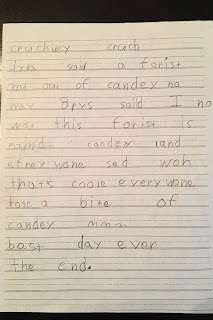 crachwey crach
Iyn said a forist
mad out of candey no
way Brys said I no
wat this forist is
named candey land
efrey wone sed woh
that's coole everywone
toock a bite of
candey mmm
best day ever
the end.